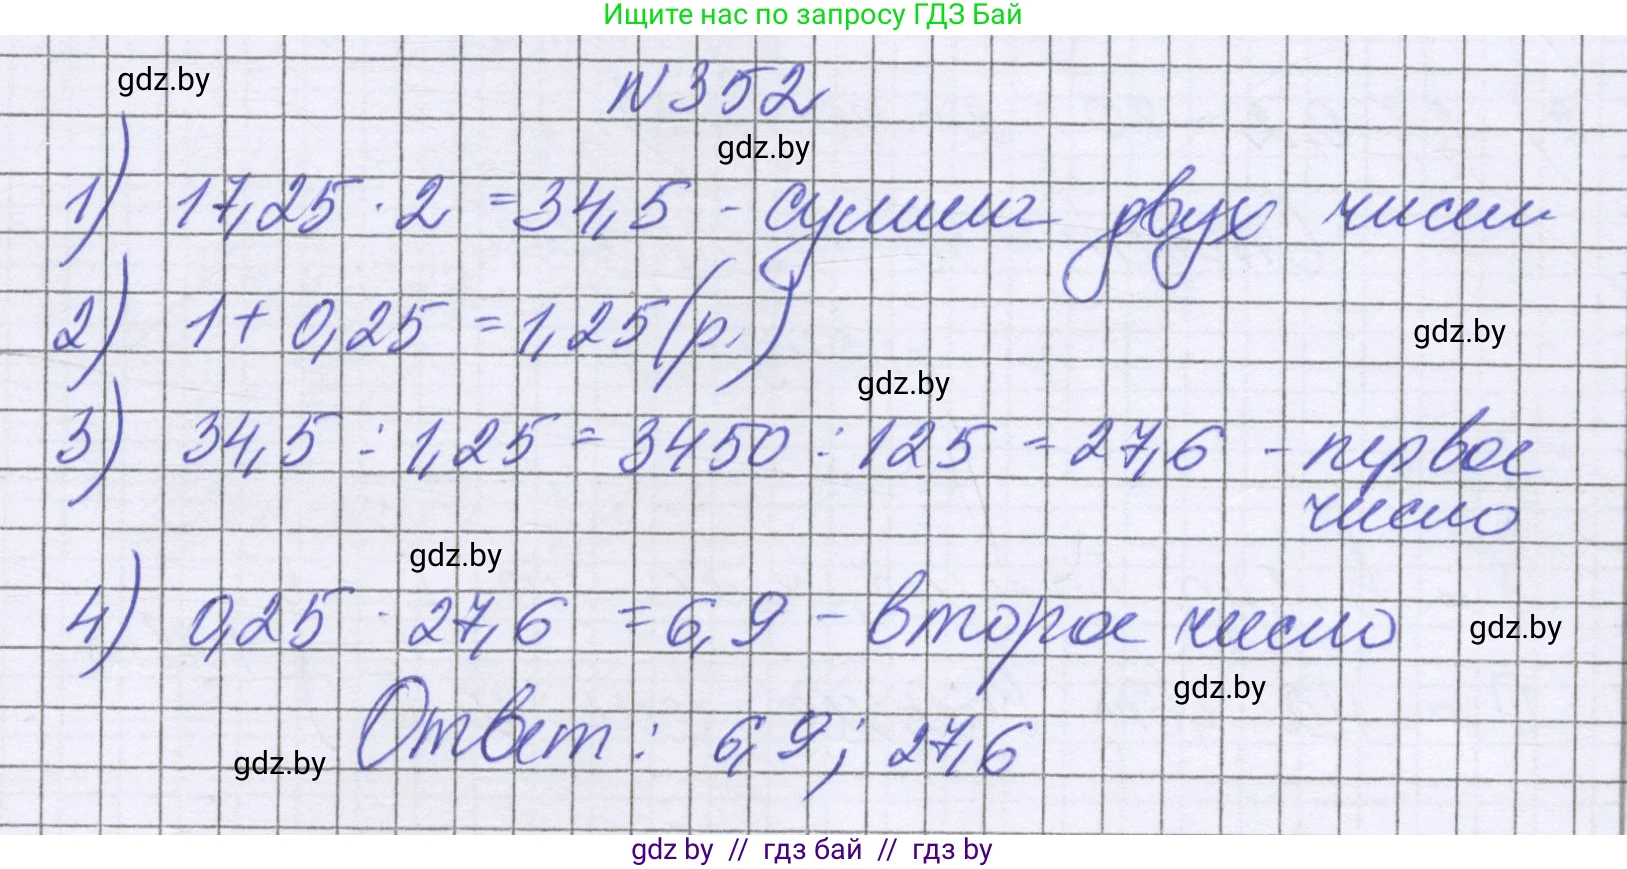 Ищите нас по запросу ГДЗ Бай
gdz.by
N352
gdz.by
1) 17,25 · 2 = 34,5 - сумма двух чисел
2) 1 + 0,25 = 1,25 (р.)
gdz.by
gdz.by
3) 34,5 : 1,25 = 3450 : 125 = 27,6 - первое
число
gdz.by
4) 0,25 · 27,6 = 6,9 - второе число
gdz.by
gdz.by
Ответ: 6,9; 27,6
gdz.by
gdz by // гдз бай // гдз by